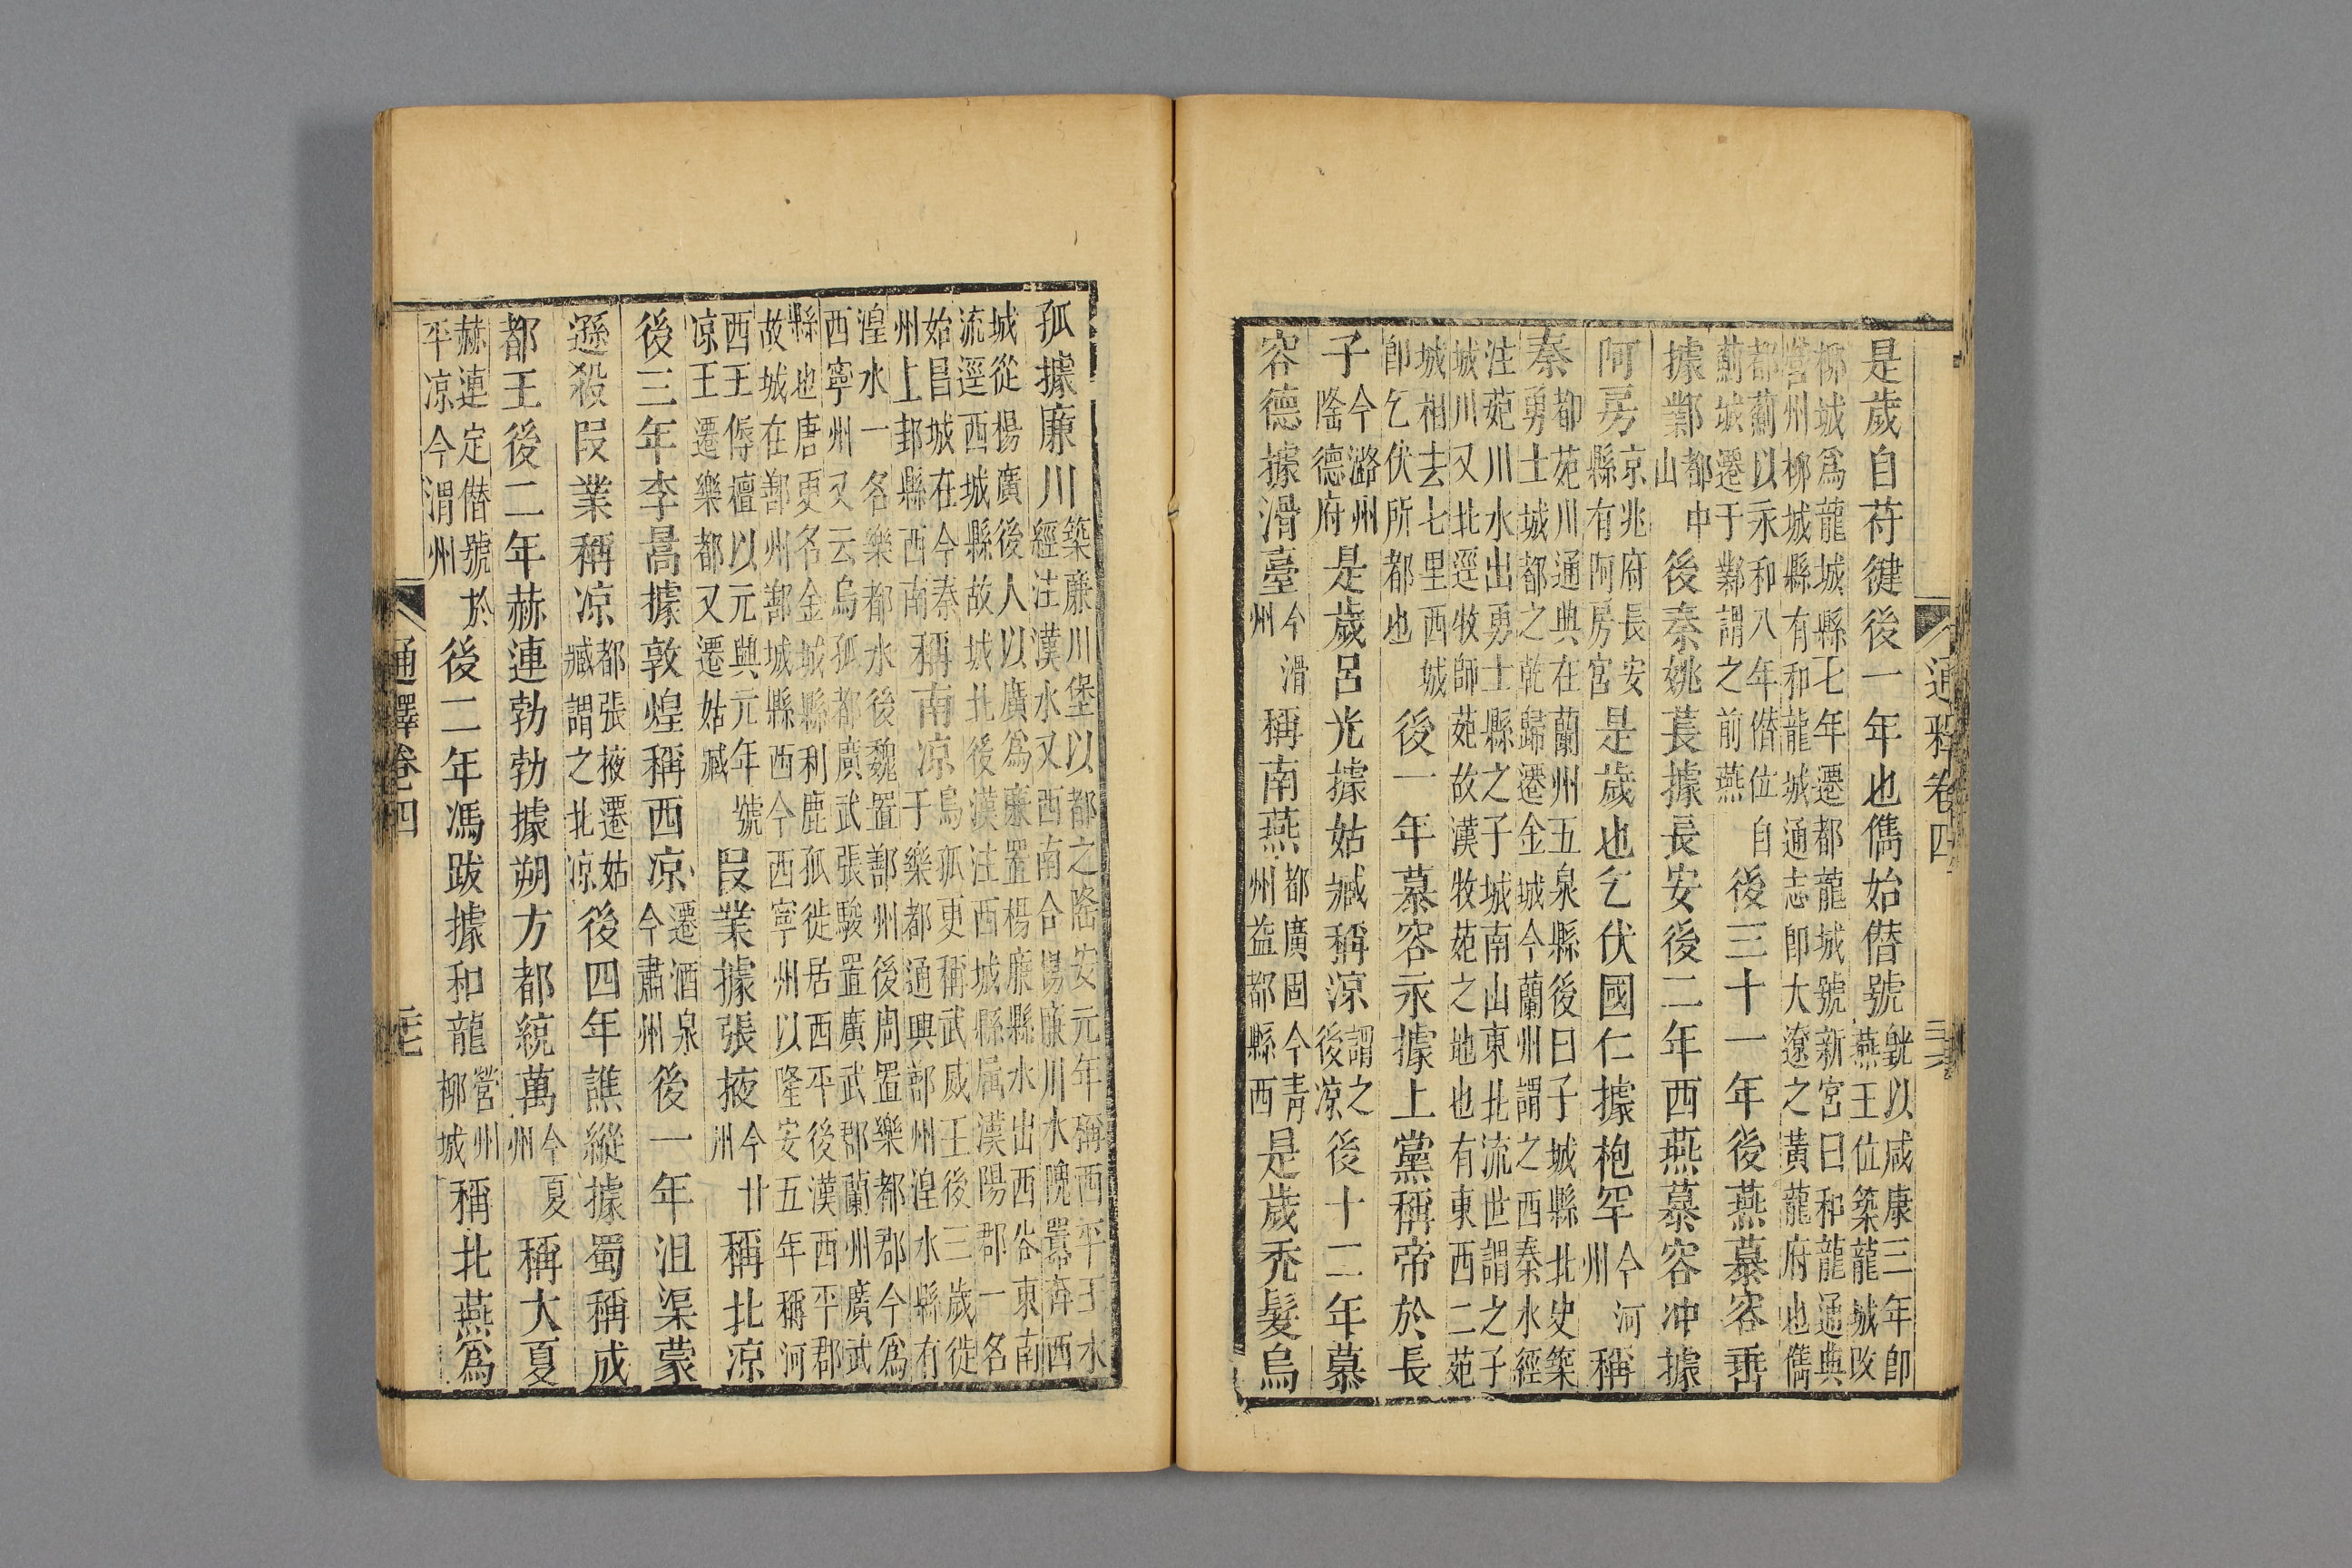 通釋卷四
三六
是歲自苻健後一年也儁始僣號皝以咸康三年即燕王位築龍城改
柳城爲龍城縣七年遷都龍城號新宮曰和龍通典營州柳城縣有和龍城通志即大遼之黃龍府也儁
都薊以永和八年僣位自薊城遷于鄴謂之前燕後三十一年後燕慕容垂
據鄴都中山後秦姚萇據長安後二年西燕慕容冲據
阿房京兆府長安縣有阿房宮是歲也乞伏國仁據枹罕今河州稱
秦都苑川通典在蘭州五泉縣後曰子城縣北史築勇士城都之乾歸遷金城今蘭州謂之西秦水經
注苑川水出勇士縣之子城南山東北流世謂之子城川又北逕牧師苑故漢牧苑之地也有東西二苑
城相去七里西城即乞伏所都也後一年慕容永據上黨稱帝於長
子今潞州隆德府是歲呂光據姑臧稱涼謂之後凉後十二年慕
容德據滑臺今滑州稱南燕都廣固今青州益都縣西是歲禿髮烏
孤據廉川築廉川堡以都之隆安元年稱西平王水經注漢水又西南合楊廉川水隗囂奔西
城從楊廣後人以廣爲廉置楊廉縣水出西谷東南流逕西城縣故城北後漢注西城縣屬漢陽郡一名
始昌城在今秦州上邽縣西南稱南凉烏孤更稱武威王後三歲徙于樂都通典鄯州湟水縣有
湟水一名樂都水後魏置鄯州後周置樂都郡今爲西寧州又云烏孤都廣武張駿置廣武郡蘭州廣武
縣也唐更名金城縣利鹿孤徙居西平後漢西平郡故城在鄯州鄯城縣西今西寧州以隆安五年稱河
西王傉檀以元興元年號凉王遷樂都又遷姑臧段業據張掖今甘州稱北凉
後三年李暠據敦煌稱西凉遷酒泉今肅州後一年沮渠蒙
遜殺段業稱凉都張掖遷姑臧謂之北凉後四年譙縱據蜀稱成
都王後二年赫連勃勃據朔方都統萬今夏州稱大夏
赫連定僣號於平凉今渭州後二年馮跋據和龍營州柳城稱北燕爲
通釋卷四
三七